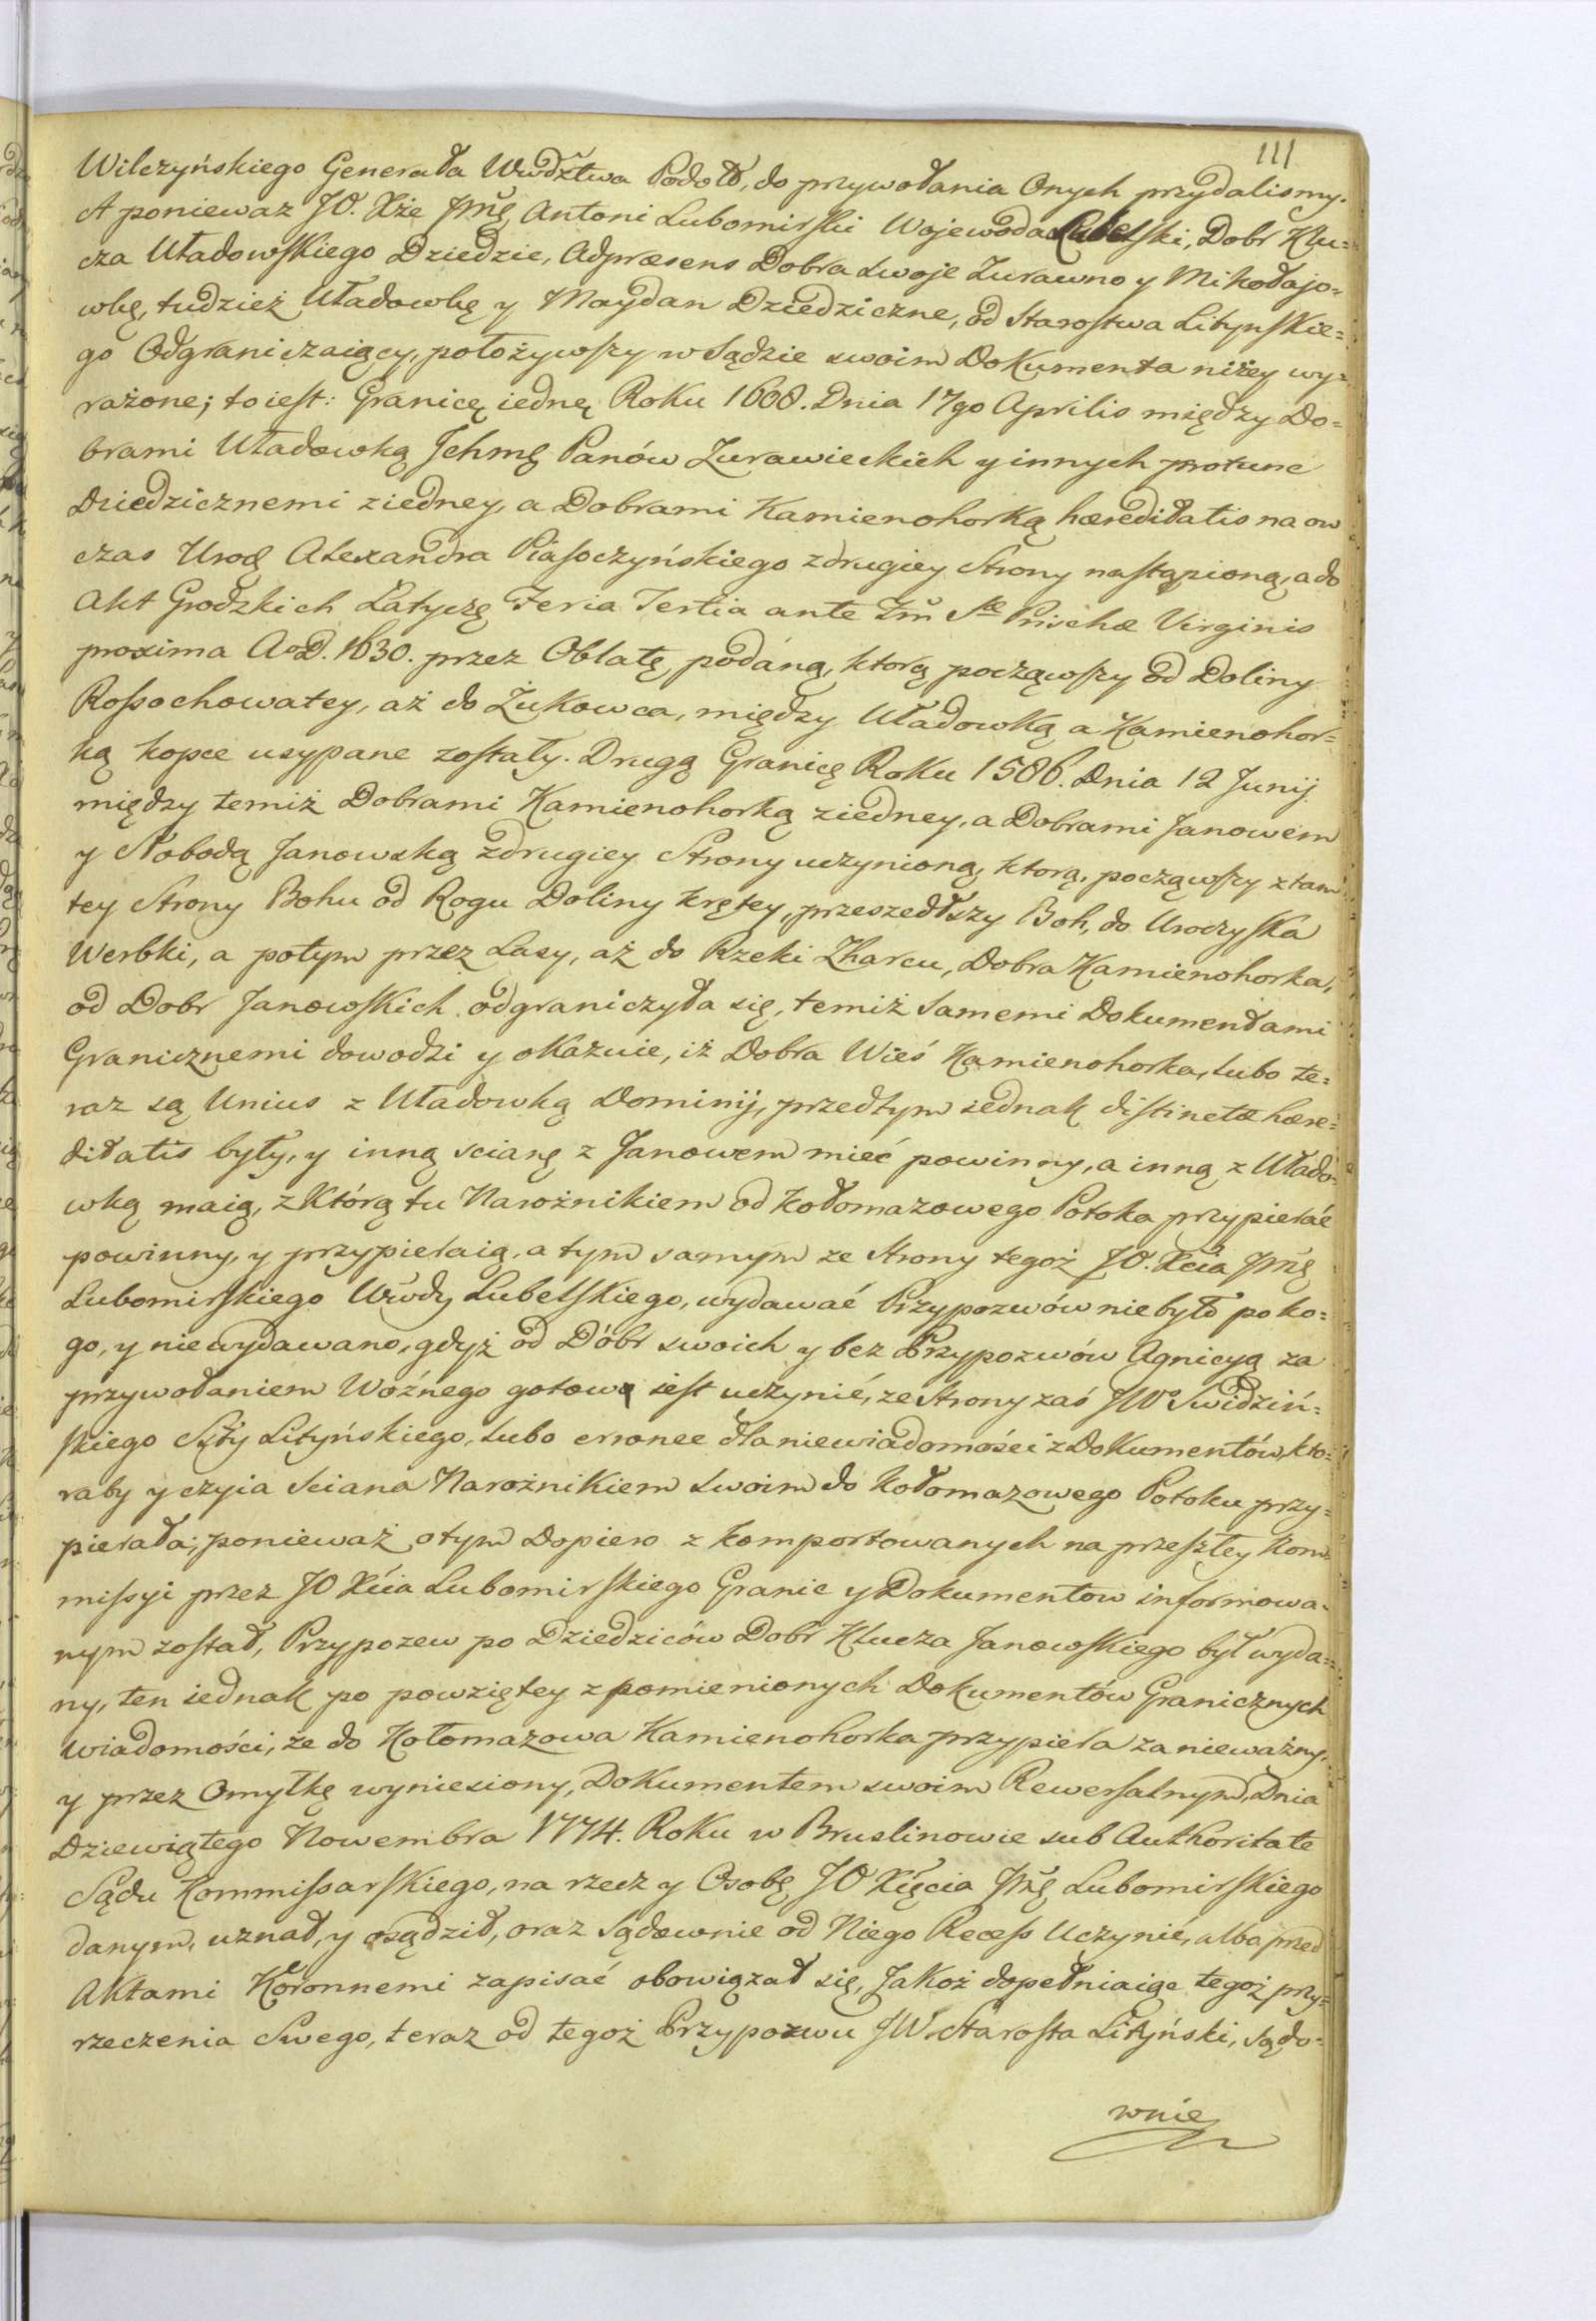 111
Wilczyńskiego Generała Wwdztwa Podoł, do przywołania Onych przydalismy.
A ponieważ JO. Xże Jmć Antoni Lubomirski Wojewoda Lubelski, Dobr Klu=
cza Uładowskiego Dziedzic, Adpræsens Dobra swoje Zurawno y Mikołajo=
wkę, tudzież Uładowkę y Maydan Dziedziczne, od Starostwa Lityńskie=
go Odgraniczaiący, położywszy w Sądzie swoim Dokumenta niżey wy=
rażone; to iest: Granicę iednę Roku 1608. Dnia 17go Aprilis między Do=
brami Uładowką Jchmę Panów Zurawieckich y innych protunc
Dziedzicznemi ziedney, a Dobrami Kamienohorką hæreditatis na ow
czas Urodę Alexandra Piasoczyńskiego zdrugiey Strony nastąpioną, a do
Akt Grodzkich Latyczę Feria Tertia ante Fm Stæ Prischæ Virginis
proxima AoD. 1630. przez Oblatę, podáną, ktorą począwszy od Doliny
Rossochowatey, aż do Żukowca, między Uładowką a Kamienohor=
ką kopce usypane zostały. Drugą Granicę Roku 1586. Dnia 12 Junij
między temiż Dobrami Kamienohorką ziedney, a Dobrami Janowem
y Słobodą Janowską zdrugiey Strony uczynioną, ktorą, począwszy z tam
tey Strony Bohu od Rogu Doliny krętey, przeszedłszy Boh, do Uroczyska
Werbki, a potym przez Lasy, aż do Rzeki Zharcu, Dobra Kamienohorka,
od Dobr Janowskich odgraniczyła się, temiż Samemi Dokumentami
Granicznemi dowodzi y okazuie, iż Dobra Wieś Kamienohorka, lubo te=
raz są Unius z Uładowką Dominij, przedtym iednak distinctæ hære=
ditatis były, y inną scianę z Janowem mieć powinny, a inną z Ułado=
wką maią, z Którą tu Narożnikiem od Kołomazowego Potoka przypierać
powinny, y przypieraią, a tym samym ze Strony tegoż JO. Xcia Jmć
Lubomirskiego Wwdy Lubelskiego, wydawać Przypozwów niebyło po ko=
go, y niewydawano, gdyż od Dóbr swoich y bez Przypozwów Agnicyą za
przywołaniem Woźnego gotow iest uczynić, ze Strony zaś JWo Swidziń=
skiego Stty Lityńskiego, lubo erronee dla niewiadomości z Dokumentów, kto=
raby y czyia Sciana Narożnikiem swoim do Kołomazowego Potoku przy=
pierała; ponieważ o tym Dopiero z komportowanych na przeszłey Kom=
missyi przez JO Xcia Lubomirskiego Granic y Dokumentow informowa=
nym został, Przypozew po Dziedziców Dobr Klucza Janowskiego był wyda=
ny, ten iednak po powziętey z pomienionych Dokumentów Granicznych
wiadomości, że do Kołomazowa Kamienohorka przypiera za nieważny,
y przez Omyłkę wyniesiony, Dokumentem swoim Rewersalnym, Dnia
Dziewiątego Nowembra 1774. Roku w Bruslinowie sub Authoritate
Sądu Kommissarskiego, na rzecz y Osobę JO Xięcia Jmć Lubomirskiego
danym, uznał, y osądził, oraz Sądownie od Niego Recess Uczynić, albo przed
Aktami Koronnemi zapisać obowiązał się, Jakoż dopełniaiąc tegoż przy=
rzeczenia Swego, teraz od tegoż Przypozwu JW. Starosta Lityński, sądo=
wnie